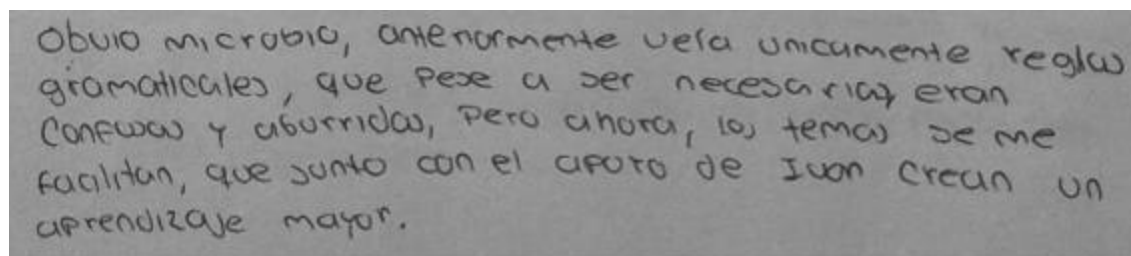 Obvio microbio, anteriormente veía unicamente reglas
gramaticales, que pese a ser necesarias eran
confusas y aburridas, pero ahora, los temas se me
facilitan, que junto con el apoyo de Ivan crean un
aprendizaje mayor.